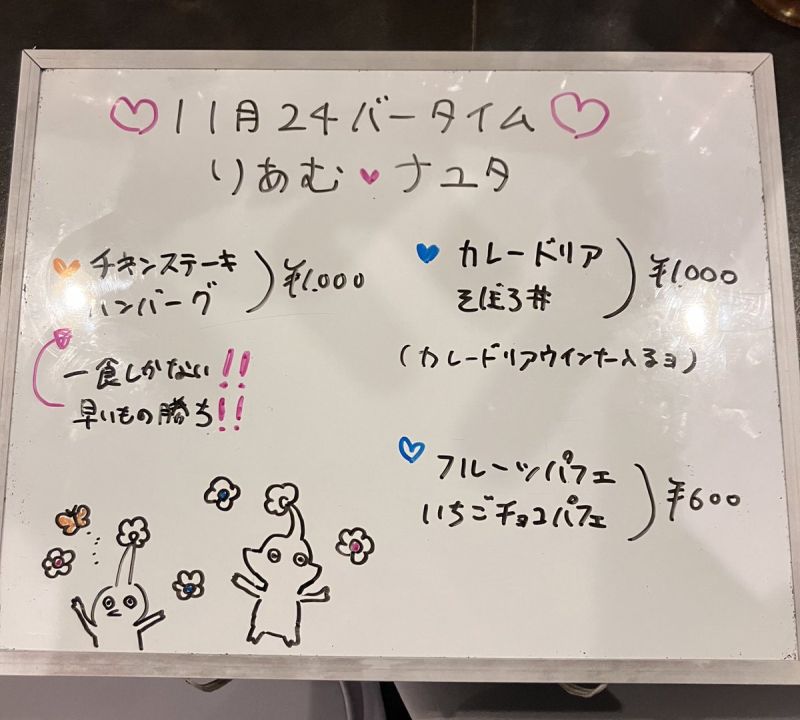 11月24バータイム
りあむ♥ナユタ
チキンステーキ
ハンバーグ
¥1,000
一食しかない!!
早いもの勝ち!!
カレードリア
そぼろ丼
¥1,000
(カレードリアウインナー入るヨ)
フルーツパフェ
いちごチョコパフェ
¥600